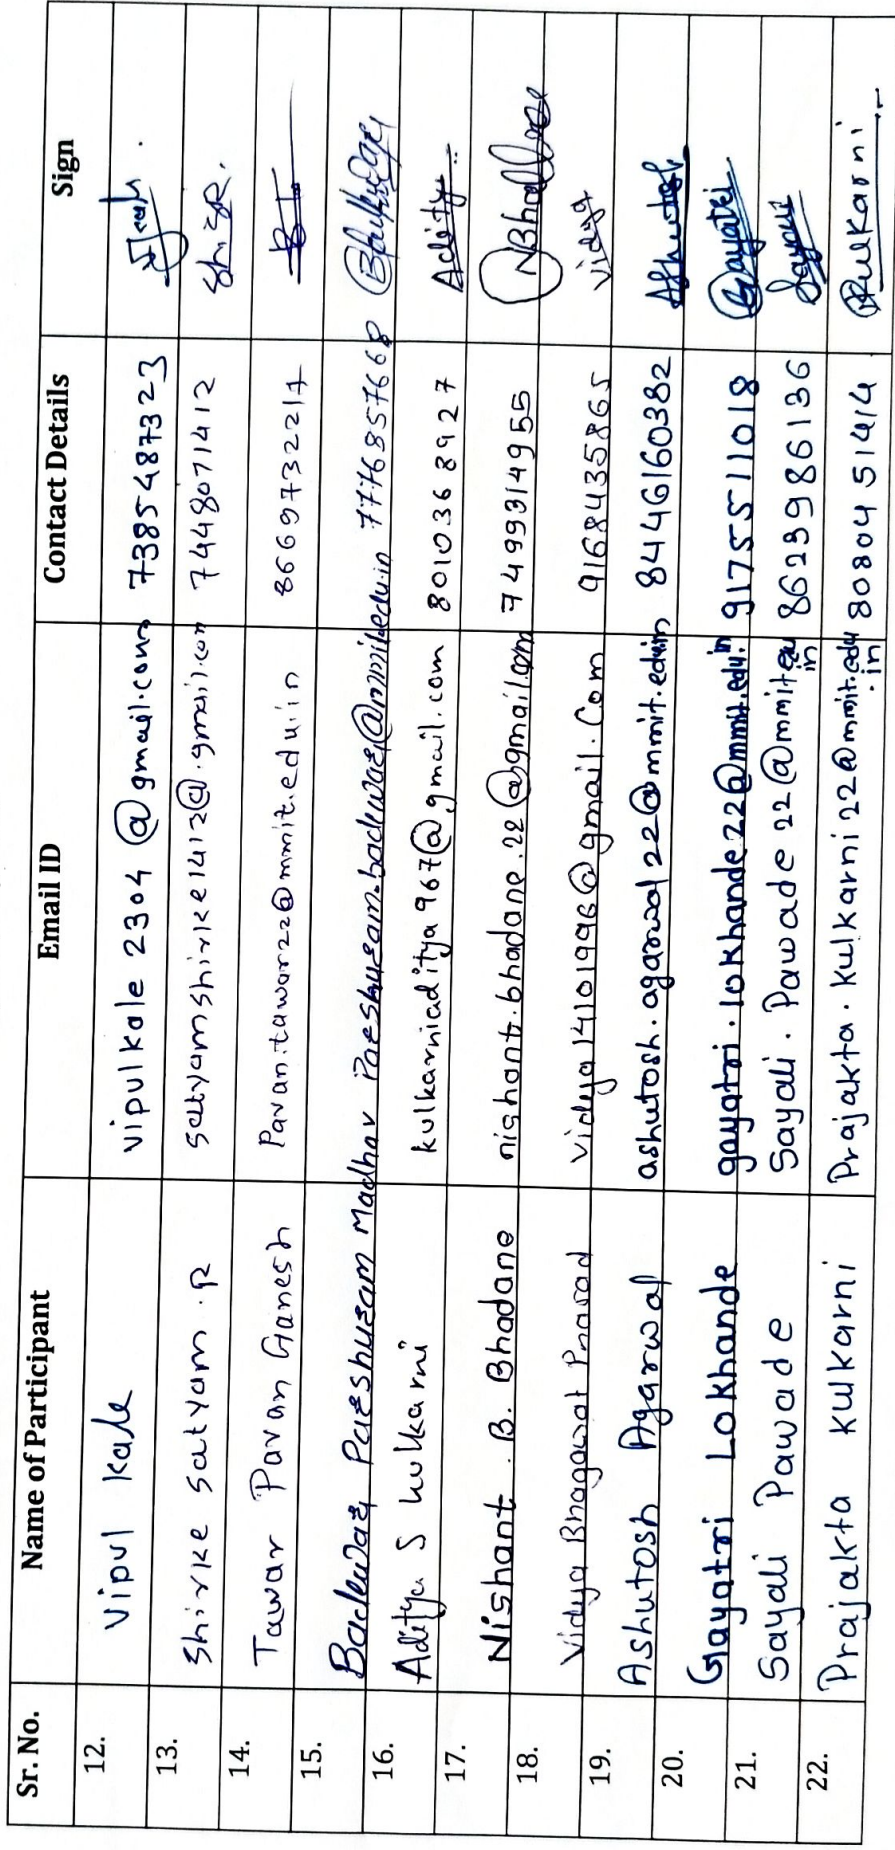 Sr. No. Name of Participant Email ID Contact Details Sign
12. Vipul Kale vipulkale2304@gmail.com 7385487323
13. Shirke Satyam .R satyamshirke1412@.gmail.com 7448071412 ShiSR.
14. Tawar Pavan Ganesh Pavan.tawar22@mmit.edu.in 8669732217
15. Badewar Parshuram Madhav Parshuram.badewar@mmit.edu.in 7776857668
16. Aditya S kulkarni kulkarniaditya967@gmail.com 8010368927 Aditya
17. Nishant . B. Bhadane nishant.bhadane.22@gmail.com 7499314955 NBhadane
18. Vidya Bhagawat Prasad vidya14101996@gmail.com 9168435865 Vidya
19. Ashutosh Agarwal ashutosh.agarwal22@mmit.edu.in 8446160382 Ashutosh
20. Gayatri Lokhande gayatri.lokhande22@mmit.edu.in 9175511018 Gayatri
21. Sayali Pawade Sayali.Pawade22@mmit.edu.in 8623986136 Sayali
22. Prajakta Kulkarni Prajakta.kulkarni22@mmit.edu.in 8080451414 PKulkarni